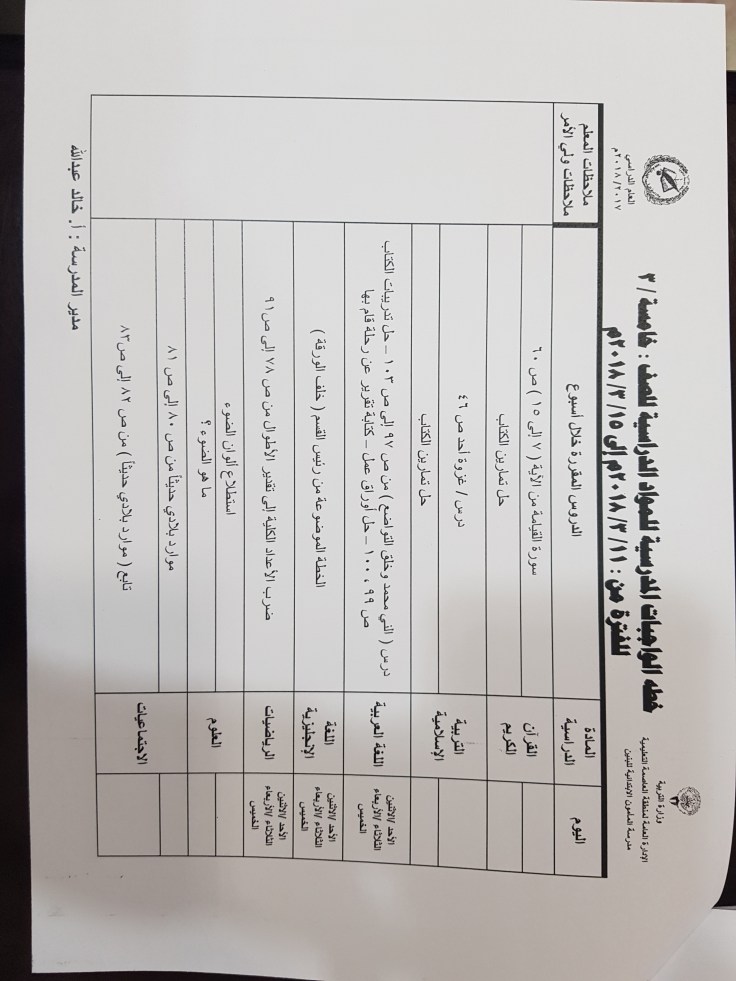 وزارة التربية
الإدارة العامة لمنطقة العاصمة التعليمية
مدرسة المأمون الابتدائية للبنين
خطه الواجبات المدرسية للمواد الدراسية للصف : خامسة / ٣
للفترة من : ٢٠١٨/٣/١١م إلى ٢٠١٨/٣/١٥م
العام الدراسي
٢٠١٨/٢٠١٧م
اليوم
المادة الدراسية
الدروس المقررة خلال أسبوع
ملاحظات المعلم
ملاحظات ولي الأمر
القرآن الكريم
سورة القيامة من الآية ( ٧ إلى ١٥ ) ص ٦٠
حل تمارين الكتاب
التربية الإسلامية
درس / غزوة أحد ص ٤٦
حل تمارين الكتاب
الأحد /الاثنين
الثلاثاء /الأربعاء
الخميس
اللغة العربية
درس ( النبي محمد وخلق التواضع ) من ص ٩٧ إلى ص ١٠٣ – حل تدريبات الكتاب
ص ٩٩ ، ١٠٠ – حل أوراق عمل – كتابة تقرير عن رحلة قام بها
الأحد /الاثنين
الثلاثاء /الأربعاء
الخميس
اللغة الإنجليزية
الخطة الموضوعة من رئيس القسم ( خلف الورقة )
الأحد /الاثنين
الثلاثاء /الأربعاء
الخميس
الرياضيات
ضرب الأعداد الكلية إلى تقدير الأطوال من ص ٧٨ إلى ص ٩١
العلوم
استطلاع ألوان الضوء
ما هو الضوء ؟
الاجتماعيات
موارد بلادي حديثاً من ص ٨٠ إلى ص ٨١
تابع ( موارد بلادي حديثاً ) من ص ٨٢ إلى ص ٨٣
مدير المدرسة : أ. خالد عبدالله